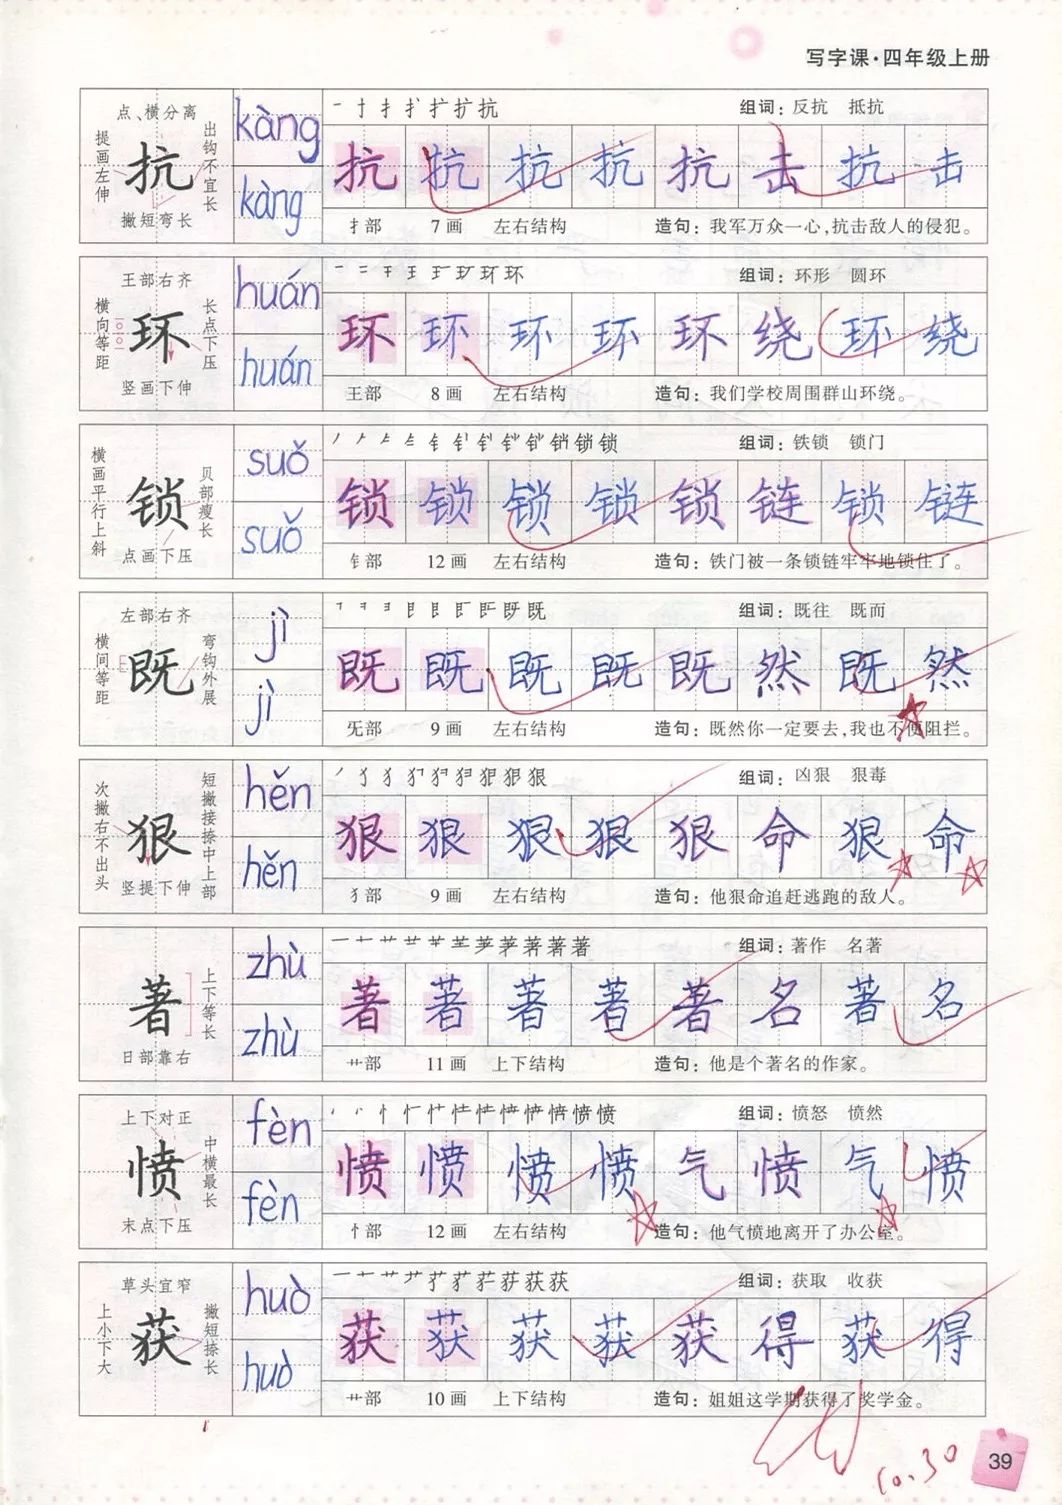 写字课·四年级上册
点、横分离
提画左伸
抗
出钩不宜长
撇短弯长
kàng
kàng
组词：反抗 抵抗
抗 抗 抗 抗 抗 击 抗 击
扌部 7画 左右结构 造句：我军万众一心，抗击敌人的侵犯。
王部右齐
横向等距
环
长点下压
竖画下伸
huán
huán
组词：环形 圆环
环 环 环 环 环 绕 环 绕
王部 8画 左右结构 造句：我们学校周围群山环绕。
横画平行上斜
锁
贝部瘦长
点画下压
suǒ
suǒ
组词：铁锁 锁门
锁 锁 锁 锁 锁 链 锁 链
钅部 12画 左右结构 造句：铁门被一条锁链牢牢地锁住了。
左部右齐
横间等距
既
弯钩外展
jì
jì
组词：既往 既而
既 既 既 既 既 然 既 然
旡部 9画 左右结构 造句：既然你一定要去，我也不便阻拦。
次撇右不出头
狠
短撇接捺中上部
竖提下伸
hěn
hěn
组词：凶狠 狠毒
狠 狠 狠 狠 狠 命 狠 命
犭部 9画 左右结构 造句：他狠命追赶逃跑的敌人。
著
上下等长
日部靠右
zhù
zhù
组词：著作 名著
著 著 著 著 著 名 著 名
艹部 11画 上下结构 造句：他是个著名的作家。
上下对正
愤
中横最长
末点下压
fèn
fèn
组词：愤怒 愤然
愤 愤 愤 愤 气 愤 气 愤
忄部 12画 左右结构 造句：他气愤地离开了办公室。
草头宜窄
上小下大
获
撇短捺长
huò
huò
组词：获取 收获
获 获 获 获 获 得 获 得
艹部 10画 上下结构 造句：姐姐这学期获得了奖学金。
10.30
39